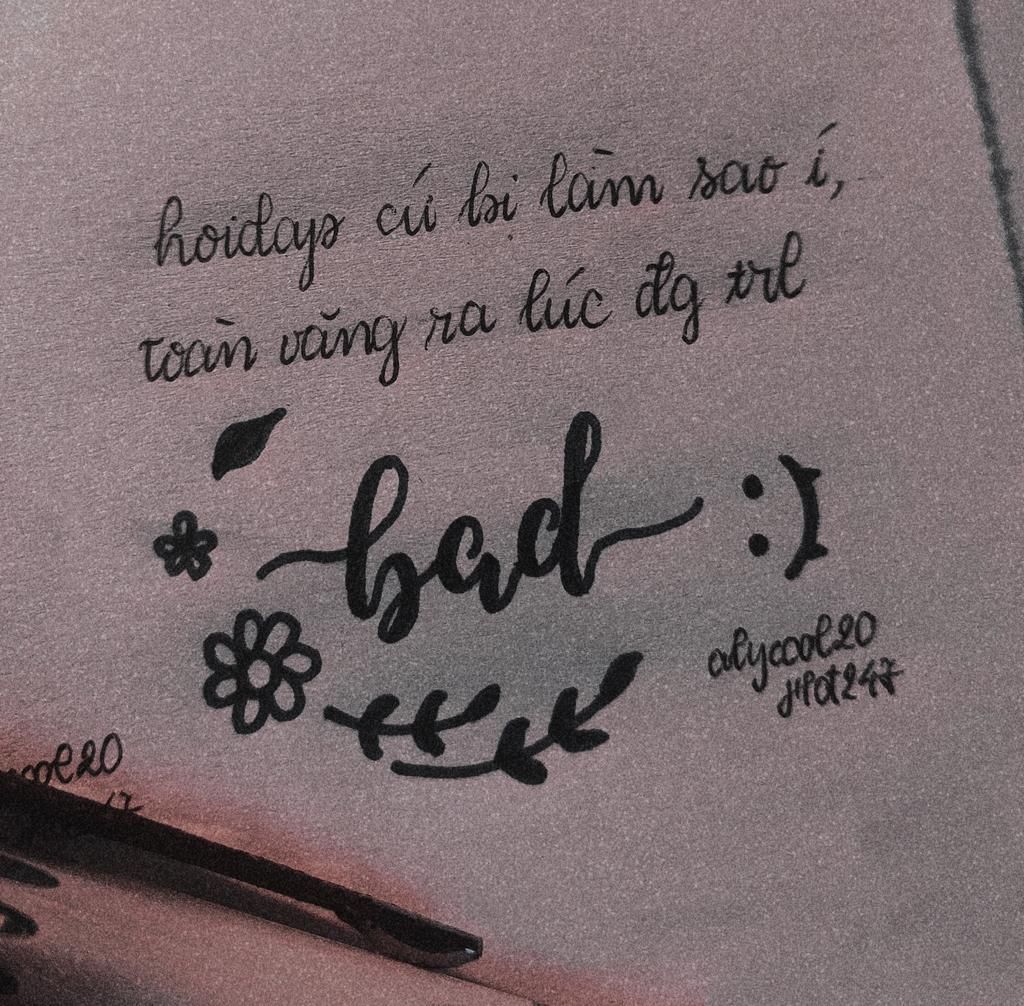 hoidays cứ bị làm sao í,
toàn văng ra lúc đg trl
bad :)
alycool20
cool20